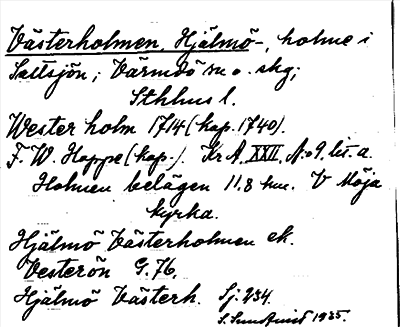 Västerholmen, Hjälmö-, holme i
Saltsjön; Värmdö sn o. skg;
Sthlms l.
Westerholm 1714 (kop. 1740).
F. W. Hoppe (kop.). Kr A. XXII, N:o 9. lit. a.
Holmen belägen 11,8 km. V Möja
kyrka.
Hjälmö Västerholmen ek.
Vesterön G. 76.
Hjälmö Västerh. Sj. 234.
S. Sundqvist 1935.